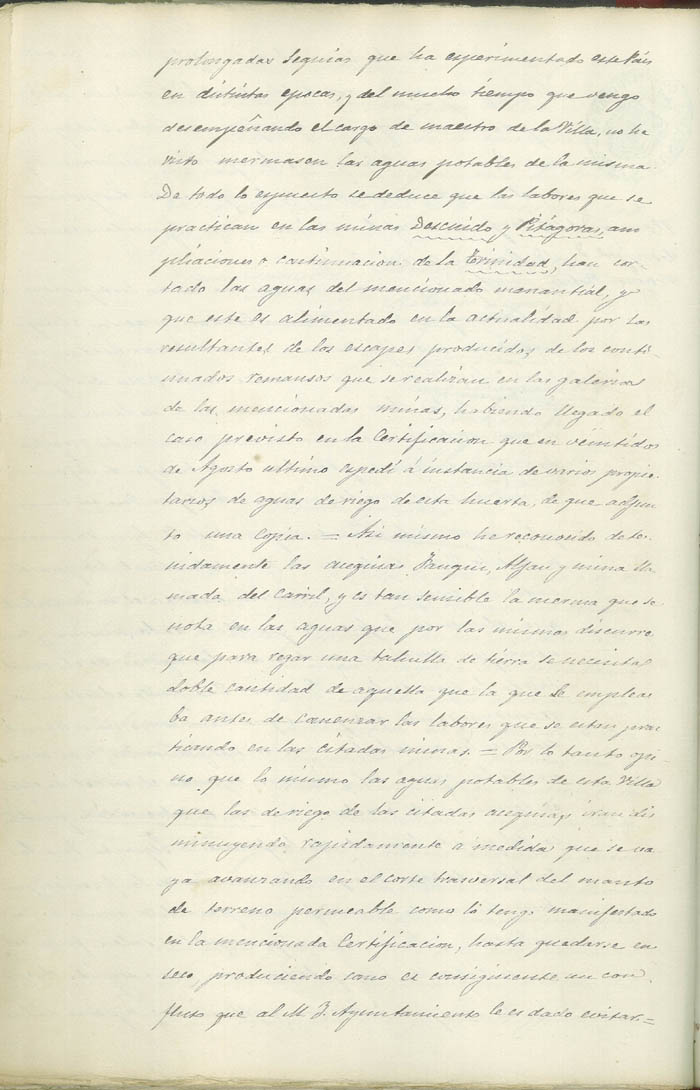 prolongadas sequias que ha experimentado este Pais
en distintas epocas, y del mucho tiempo que vengo
desempeñando el cargo de maestro de la Villa, no he
visto mermasen las aguas potables de la misma.
De todo lo espuesto se deduce que las labores que se
practican en las minas Descuido y Pitágoras, am
pliaciones o continuacion de la Trinidad, han cor-
tado las aguas del mencionado manantial, y
que este es alimentado en la actualidad por las
resultantes de los escapes producidos de los conti-
nuados remansos que se realizan en las galerias
de las mencionadas minas, habiendo llegado el
caso previsto en la Certificacion que en veintidos
de Agosto ultimo espedí á instancia de varios propie-
tarios de aguas de riego de esta huerta, de que adjun
to una copia. = Asi mismo he reconocido dete-
nidamente las acequias Alfau y mina lla
mada del Carril, y es tan sensible la merma que se
nota en las aguas que por las mismas discurre
que para regar una tahulla de tierra se necesita
doble cantidad de aquella que la que se emplea
ba antes de comenzar las labores que se estan prac
ticando en las citadas minas. = Por lo tanto opi
no que lo mismo las aguas potables de esta Villa
que las de riego de las citadas acequias, iran dis
minuyendo rapidamente a medida que se va
ya avanzando en el corte trasversal del manto
de terreno permeable como lo tengo manifestado
en la mencionada Certificacion, hasta quedarse en
seco, produciendo como es consiguiente un con
flicto que al M. Y. Ayuntamiento le es dado evitar. =